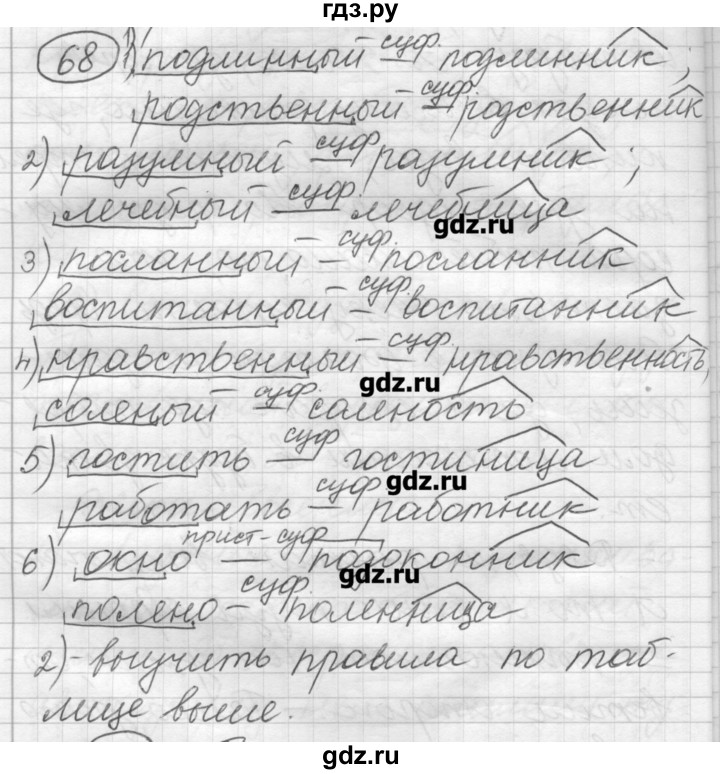 гдз.ру
68 1) подлинный — суф. подлинник;
родственный — суф. родственник
2) разумный — суф. разумник;
лечебный — суф. лечебница
gdz.ru
3) посланный — суф. посланник
воспитанный — суф. воспитанник
4) нравственный — суф. нравственность,
gdz.ru
соленый — суф. соленость
5) гостить — суф. гостиница
gdz.ru
работать — суф. работник
6) окно — прист-суф. подоконник
gdz.ru
полено — суф. поленница
2) - выучить правила по таб-
лице выше.
gdz.ru